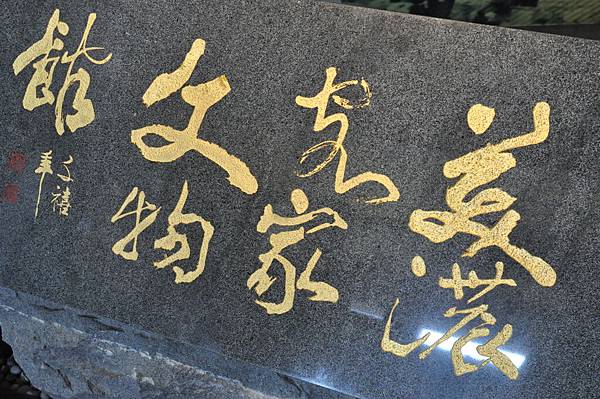 美濃
客家
文物
館
千禧年